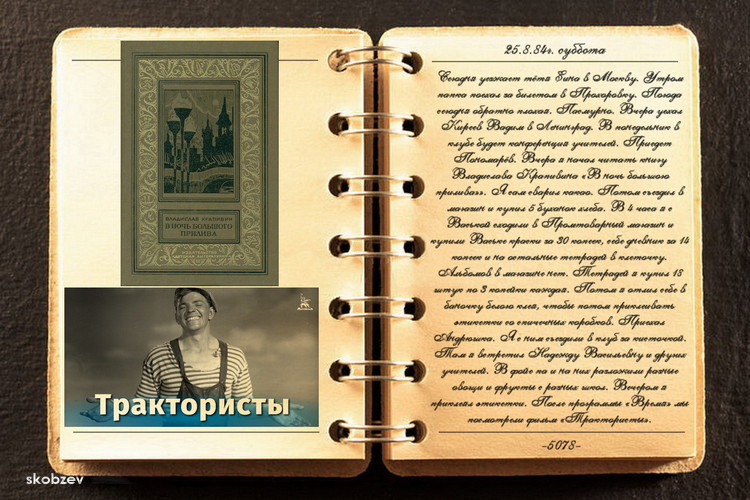 ВЛАДИСЛАВ КРАПИВИН
В НОЧЬ БОЛЬШОГО
ПРИЛИВА
ИЗДАТЕЛЬСТВО
«ДЕТСКАЯ ЛИТЕРАТУРА»
Трактористы
skobzev
25.8.84г. суббота
Сегодня уезжает тётя Зина в Москву. Утром
папка поехал за билетом в Прохоровку. Погода
сегодня обратно плохая. Пасмурно. Вчера уехал
Киреев Вадим в Ленинград. В понедельник в
клубе будет конференция учителей. Приедет
Пономарёв. Вчера я начал читать книгу
Владислава Крапивина «В ночь большого
прилива». А сам сварил какао. Потом съездил в
магазин и купил 5 буханок хлеба. В 4 часа я с
Васькой сходили в Промтоварный магазин и
купили Ваське краски за 30 копеек, себе дневник за 14
копеек и на остальные тетрадей в клеточку.
Альбомов в магазине нет. Тетрадей я купил 18
штук по 3 копейки каждая. Потом я отлил себе в
баночку белого клея, чтобы потом приклеивать
этикетки со спичечных коробков. Приехал
Андрюшка. Я с ним съездили в клуб за кисточкой.
Там я встретил Надежду Васильевну и других
учителей. В фойе по и на них разложили разные
овощи и фрукты с разных школ. Вечером я
приклеял этикетки. После программы «Время» мы
посмотрели фильм «Трактористы».
-5078-